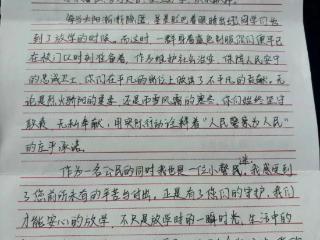 每当太阳渐渐降落，黄昏照色着眼时出现同学们告
到了放学的时候。而这时，一群身着蓝色制服你们便早已
在校门口时刻准备着。作为维护社会治安、保障人民安宁
的忠诚卫士，你们在平凡的岗位上做出了不平凡的贡献。无
论是烈火骄阳的夏季，还是雨雪风霜的寒冬，你们始终坚守
职责，无私奉献，用实际行动诠释着“人民警察为人民”
的庄严承诺。
作为一名公民的同时我也是一位小警迷，我感受到
了您前所未有的辛苦与付出，正是有了你们的守护，我们
才能安心的放学，不只是放学时的一瞬时卷，生活中的